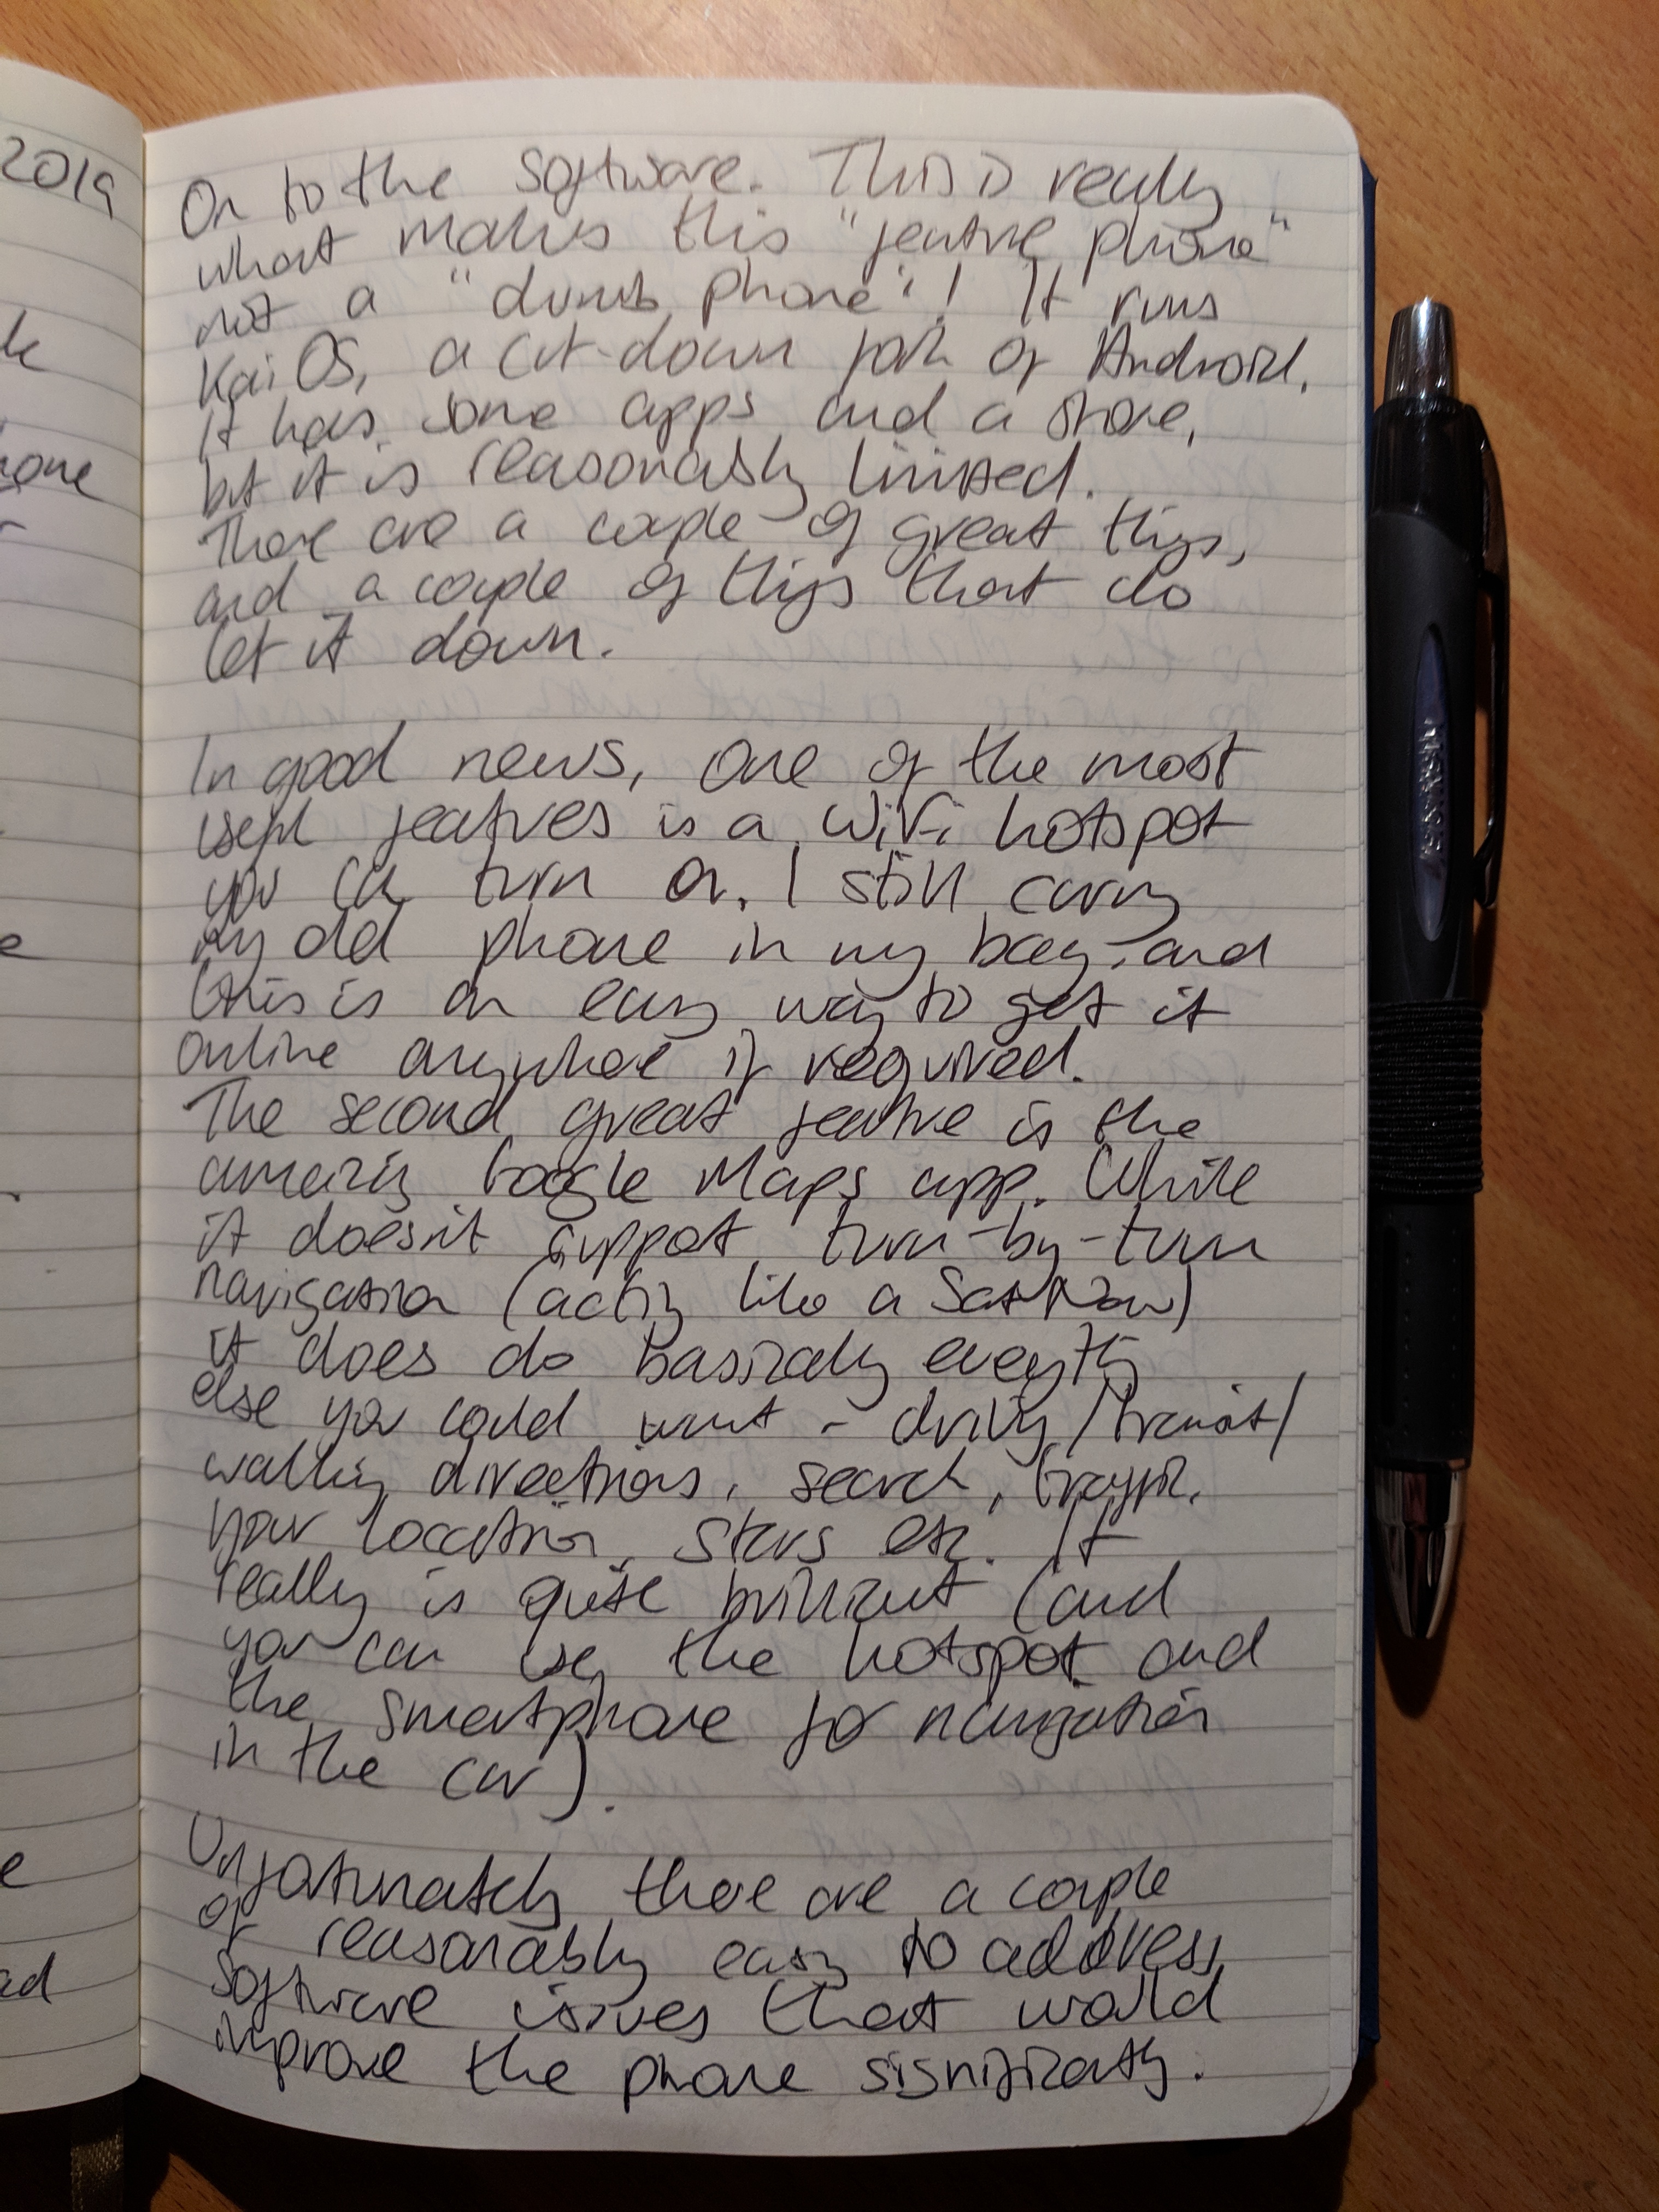 2019
On to the software. This is really
what makes this "feature phone"
not a "dumb phone"! It runs
KaiOS, a cut-down fork of Android.
It has some apps and a store,
but it is reasonably limited.
There are a couple of great things,
and a couple of things that do
let it down.
In good news, one of the most
useful features is a WiFi hotspot
you can turn on. I still carry
my old phone in my bag, and
this is an easy way to get it
online anywhere if required.
The second great feature is the
amazing Google Maps app. While
it doesn't support turn-by-turn
navigation (acting like a SatNav)
it does do basically everything
else you could want - driving/transit/
walking directions, search, traffic,
your location, stars etc. It
really is quite brilliant (and
you can use the hotspot and
the smartphone for navigation
in the car).
Unfortunately there are a couple
of reasonably easy to address
software issues that would
improve the phone significantly.